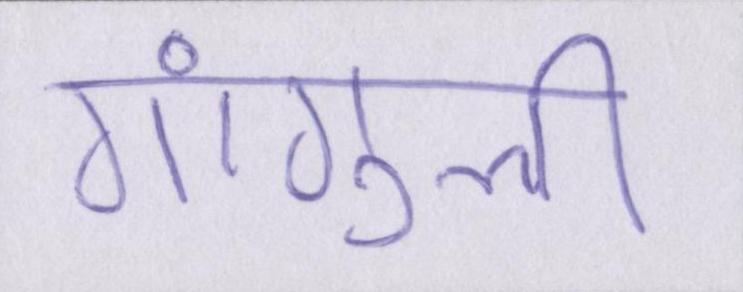 गांगुली